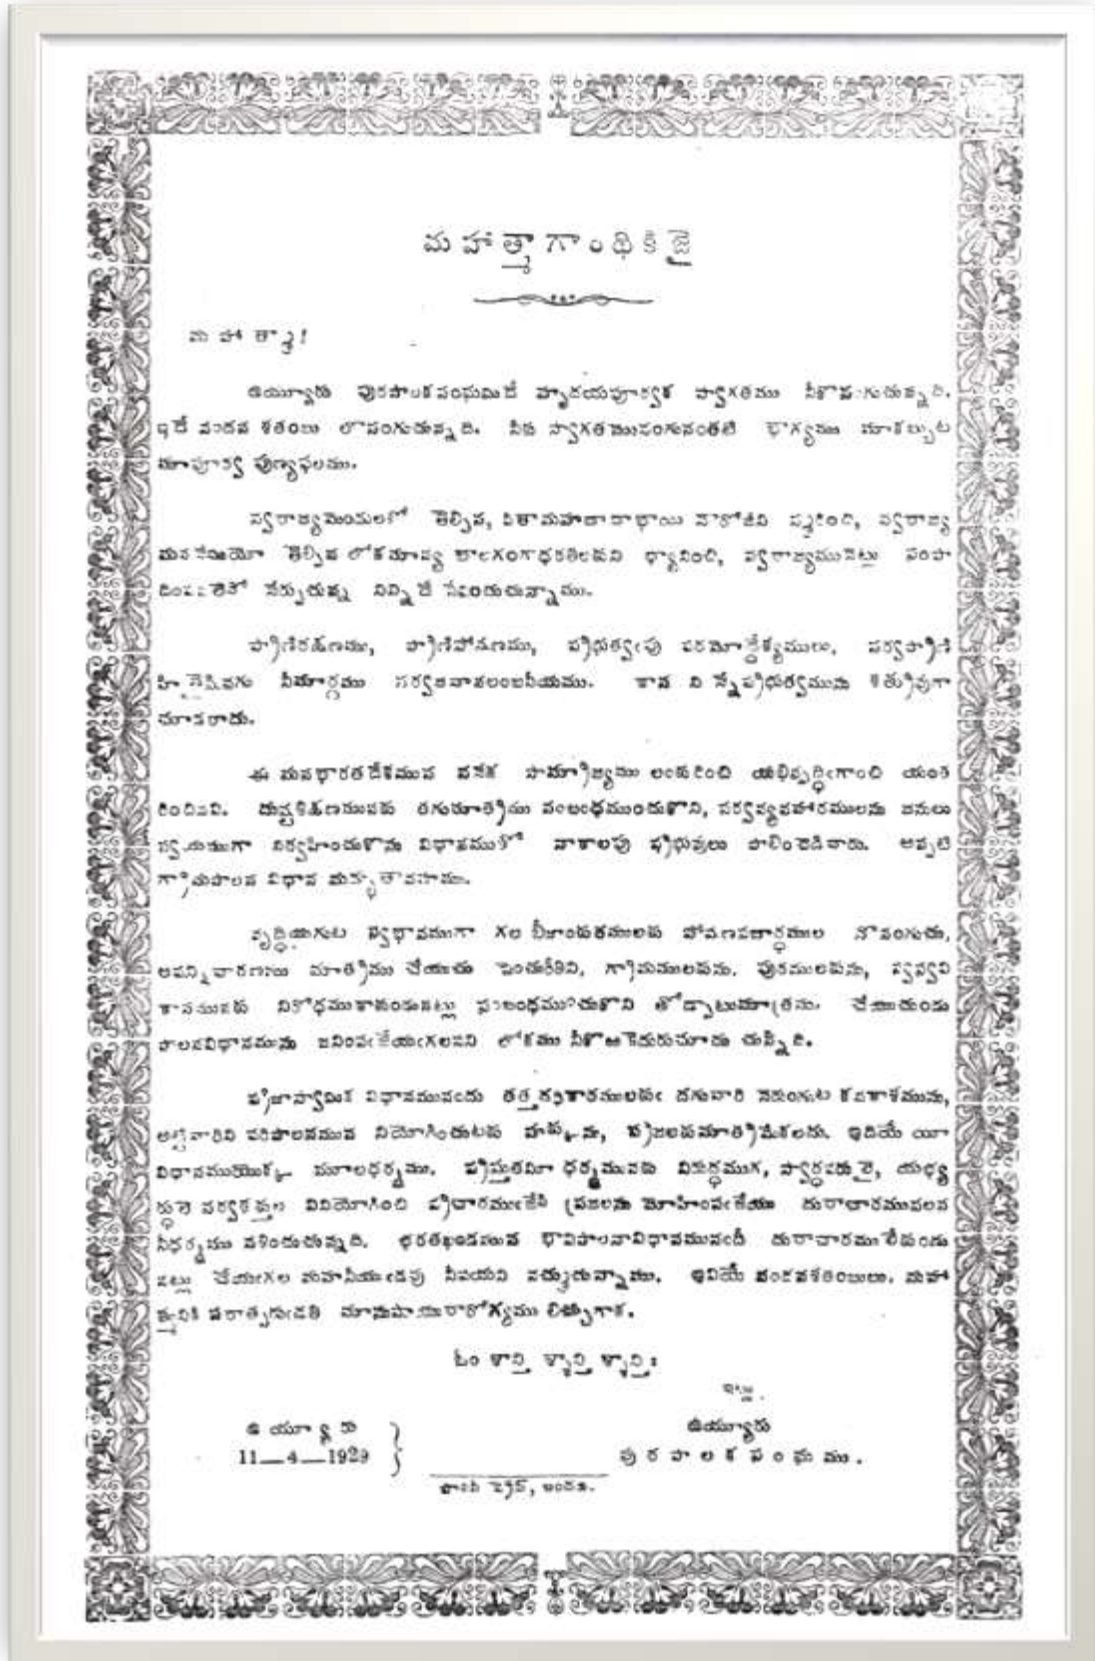 మహాత్మాగాంధికిజై
మహాత్మా!
ఉయ్యూరు పురపాలకసంఘమిదే హృదయపూర్వక స్వాగతము నీకొసగుచున్నది.
ఇదే వందన శతంబు లొసంగుచున్నది. నీకు స్వాగతమునంగునంతటి భాగ్యము మాకబ్బుట
మాపూర్వ పుణ్యఫలము.
స్వరాజ్యమెందులకో తెల్పిన, పితామహదాదాభాయి నౌరోజీని స్మరించి, స్వరాజ్య
మన నేమియో తెల్పిన లోకమాన్య బాలగంగాధరతిలకుని ధ్యానించి, స్వరాజ్యమునెట్లు సంపా
నేర్పుచున్న నిన్నిదే సేవించుచున్నాము.
ప్రాణిరక్షణము, ప్రాణిపోషణము, ప్రభుత్వంపు పరమోద్దేశ్యములు, సర్వప్రాణి
హితైషివగు నీమార్గము సర్వజనావలంబనీయము. కాన నిన్నేప్రభుత్వమును శత్రువుగా
చూడరాదు.
ఈ మనభారతదేశమున ననేక సామ్రాజ్యము లంకురించి యభివృద్ధిఁగాంచి యంత
రించినవి. దుష్టశిక్షణమునకు తగుమాత్రము సంబంధముంచుకొని, సర్వవ్యవహారములను జనులు
స్వయముగా నిర్వహించుకొను విధానముతో నాకాలపు ప్రభువులు పాలించెడివారు. అప్పటి
గ్రామపాలన విధాన మత్యద్భుతావహము.
వృద్ధియగుట స్వభావముగా గల బీజాంకురములకు పోషణపదార్థముల నొసంగుచు,
మాత్రము చేయుచు పెంచురీతిని, గ్రామములకును, పురములకును, స్వస్వవి
కాసమునకు నిరోధముకాకుండునట్లు సంబంధముంచుకొని తోడ్పాటుమాత్రము చేయుచుండు
పాలనవిధానమును జనింపఁజేయఁగలవని లోకము నీకొఱకెదురుచూచు చున్నది.
ప్రజాస్వామిక విధానమునందు తత్తదధికారములకుఁ దగువారి నెఱుంగుట కవకాశమును,
అట్టివారిని పరిపాలనమున నియోగించుటకు హక్కును, ప్రజలకుమాత్రమేకలదు. ఇదియే యీ
విధానముయొక్క మూలధర్మము. ప్రస్తుతమీ ధర్మమునకు విరుద్ధముగ, స్వార్థపరులై, యభ్య
ర్థులె సర్వశక్తుల వినియోగించి ప్రచారముఁజేసి ప్రజలను మోహింపఁజేయు దురాచారమువలన
నీధర్మము నశించుచున్నది. భరతఖండమున భావిపాలనావిధానమునందీ దురాచారము లేకుండు
నట్లు చేయఁగల మహనీయుఁడవు నీవయని నమ్ముచున్నాము. ఇవియే వందనశతంబులు. మహా
త్మునికి పరాత్పరుఁడతి మానుషాయురారోగ్యము లిచ్చుగాక.
ఓం శాన్తి శ్శాన్తి శ్శాన్తిః
ఇట్లు,
ఉయ్యూరు
11—4—1929
ఉయ్యూరు
పురపాలకసంఘము.